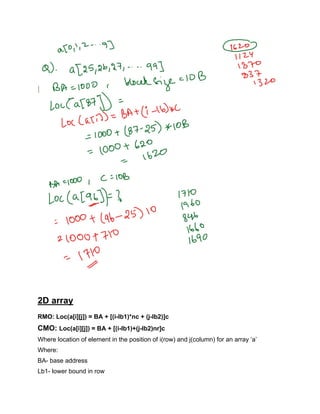 a[0,1,2...9]
Q). a[25,26,27,...99]
BA=1000, block size=10B
Loc(a[87]) =
Loc(a[i]) = BA+(i-lb)*C
= 1000+(87-25)*10B
= 1000+620
= 1620
1620
1124
1870
837
1320
BA=1000, C=10B
Loc(a[96])=?
= 1000+(96-25)10
=1000+710
= 1710
1710
1960
846
1660
1690
2D array
RMO: Loc(a[i][j]) = BA + [(i-lb1)*nc + (j-lb2)]c
CMO: Loc(a[i][j]) = BA + [(i-lb1)+(j-lb2)nr]c
Where location of element in the position of i(row) and j(column) for an array 'a'
Where:
BA- base address
Lb1- lower bound in row